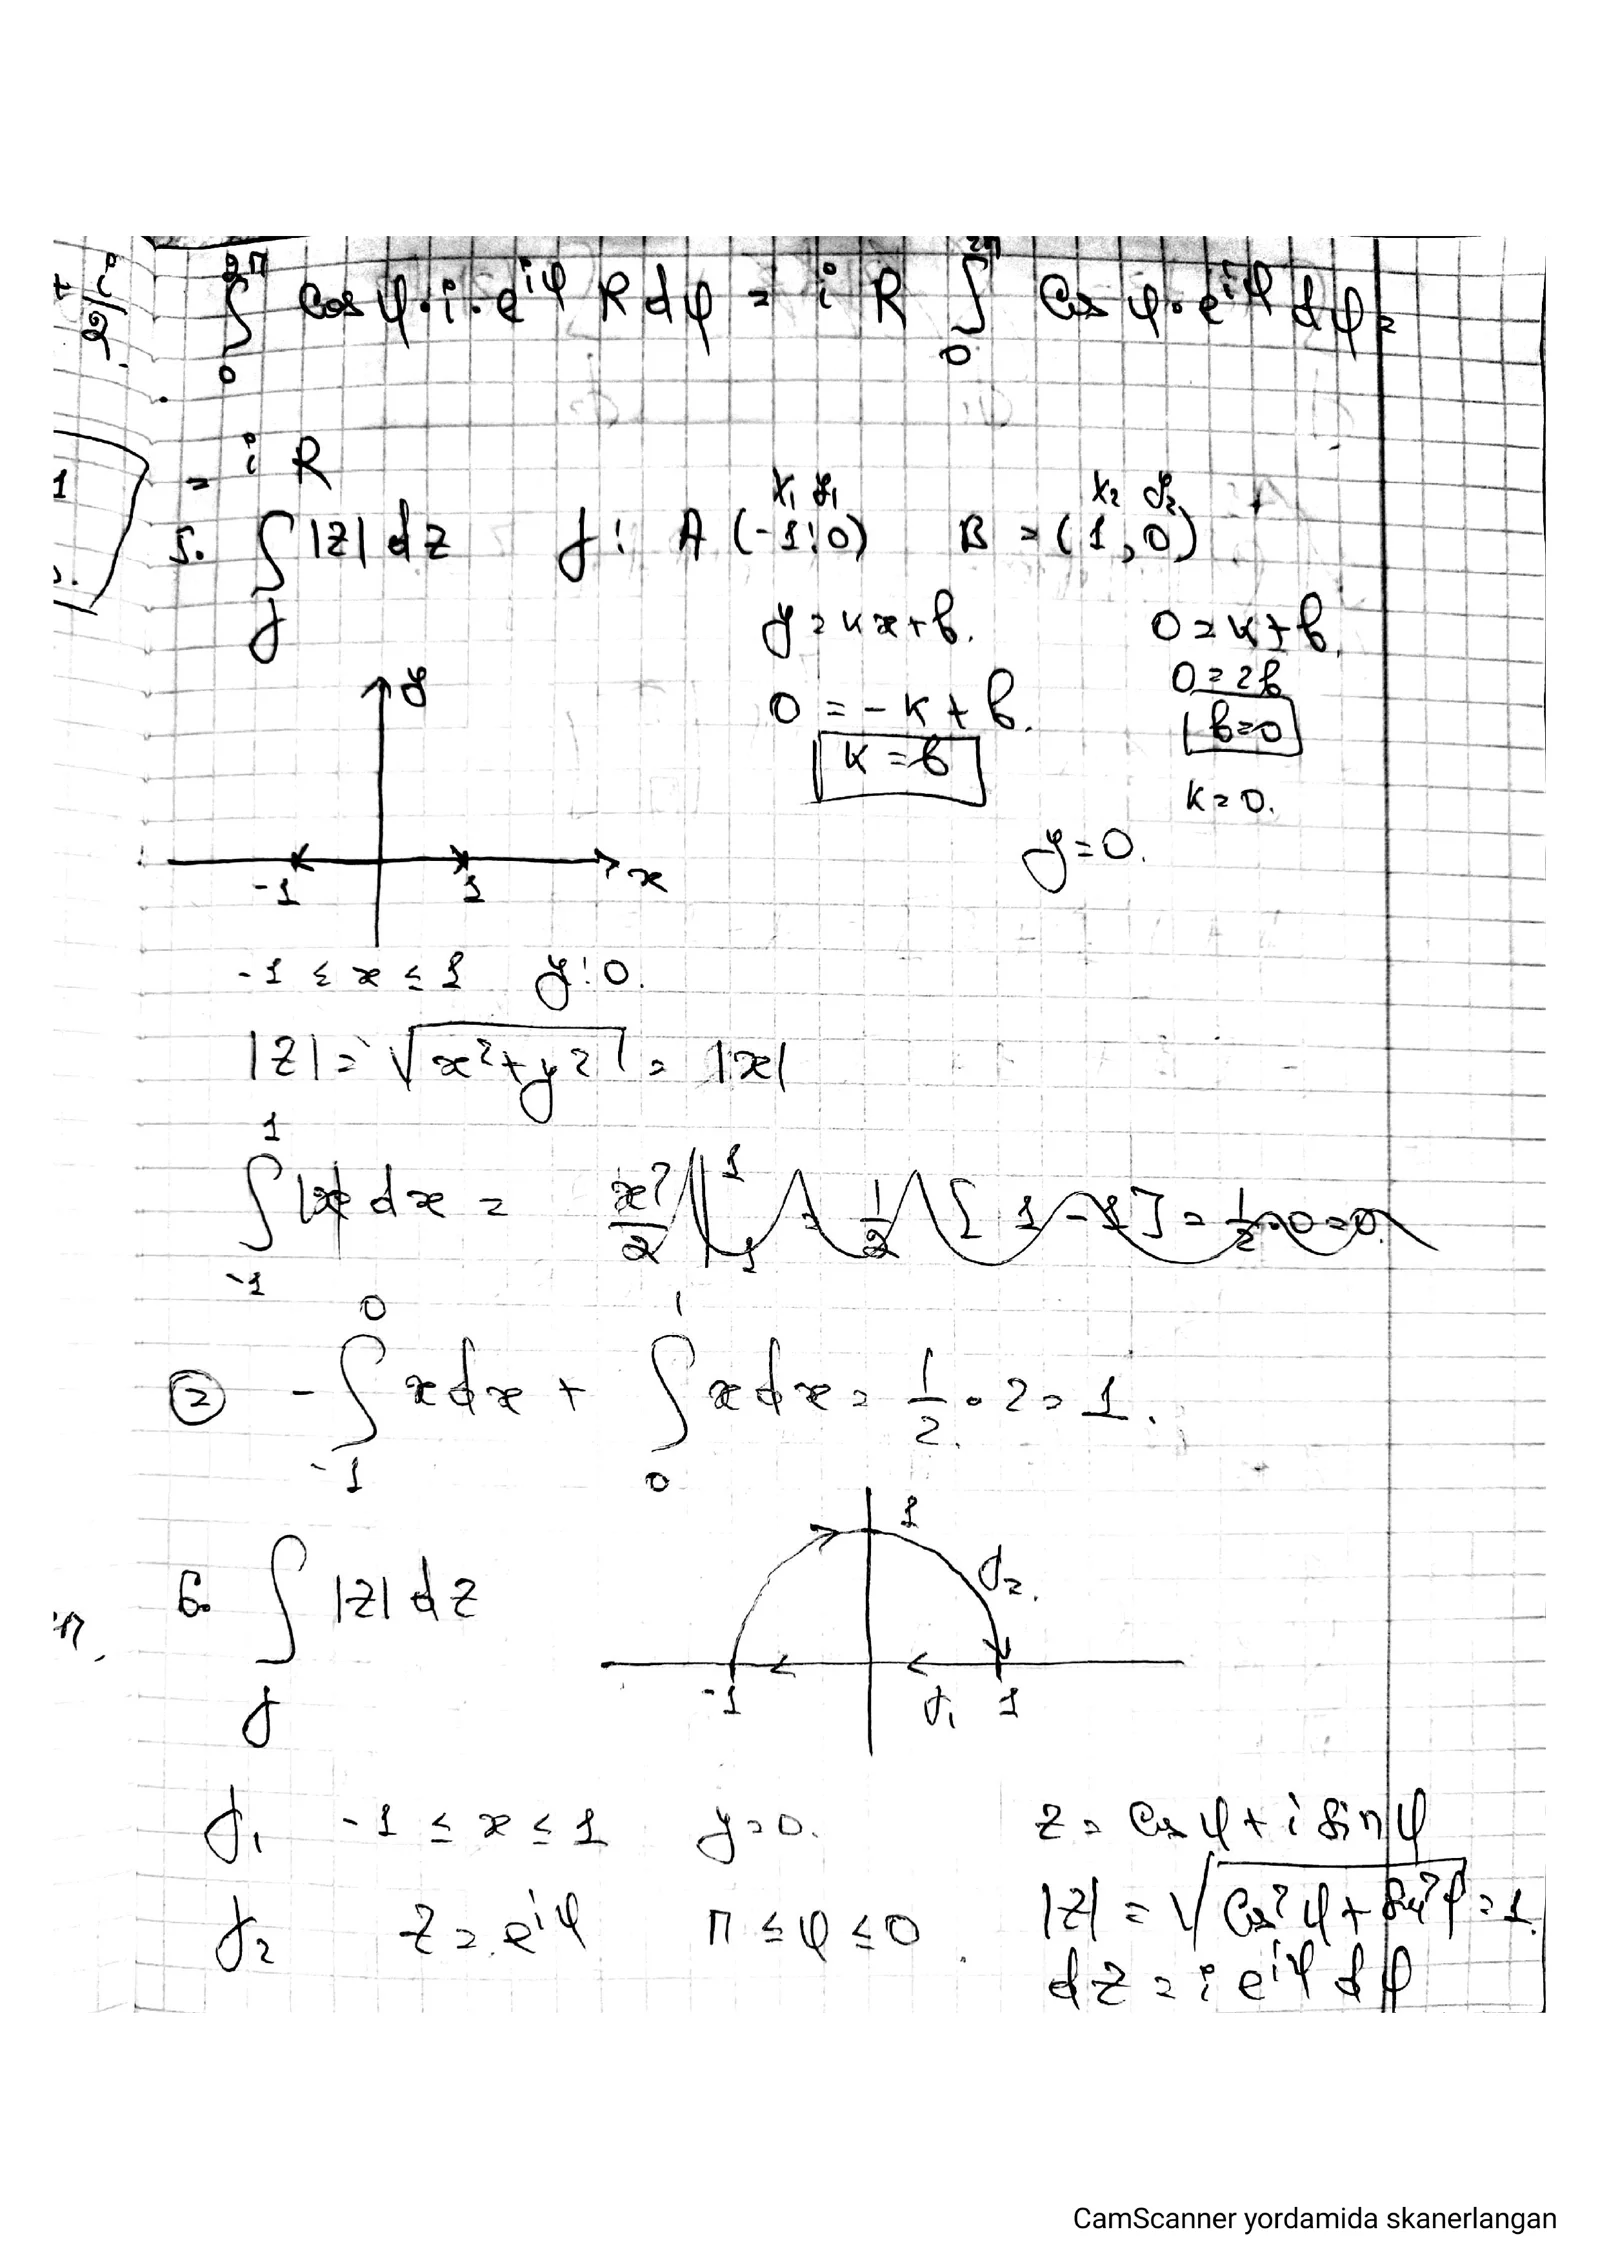 + i/2
∫₀^{2π} cos φ · i · e^{iφ} R dφ = i R ∫₀^{2π} cos φ · e^{iφ} dφ =
= i R
1
x₁ y₁ x₂ y₂
5. ∫_γ |z| dz γ: A (-1; 0) B = (1, 0)
y = kx + b. 0 = k + b.
y
0 = -k + b. 0 = 2b
k = b b = 0
k = 0.
y = 0.
-1 1 x
-1 ≤ x ≤ 1 y: 0.
|z| = √(x² + y²) = |x|
∫_{-1}^{1} |x| dx = x²/2 |_{-1}^{1} = 1/2 [1 - 1] = 1/2 · 0 = 0.
② - ∫_{-1}^{0} x dx + ∫_{0}^{1} x dx = 1/2 · 2 = 1.
1
γ₂.
6. ∫_γ |z| dz
-1 γ₁ 1
γ₁ -1 ≤ x ≤ 1 y = 0. z = cos φ + i sin φ
γ₂ z = e^{iφ} π ≤ φ ≤ 0. |z| = √(cos² φ + sin² φ) = 1.
dz = i e^{iφ} dφ
CamScanner yordamida skanerlangan